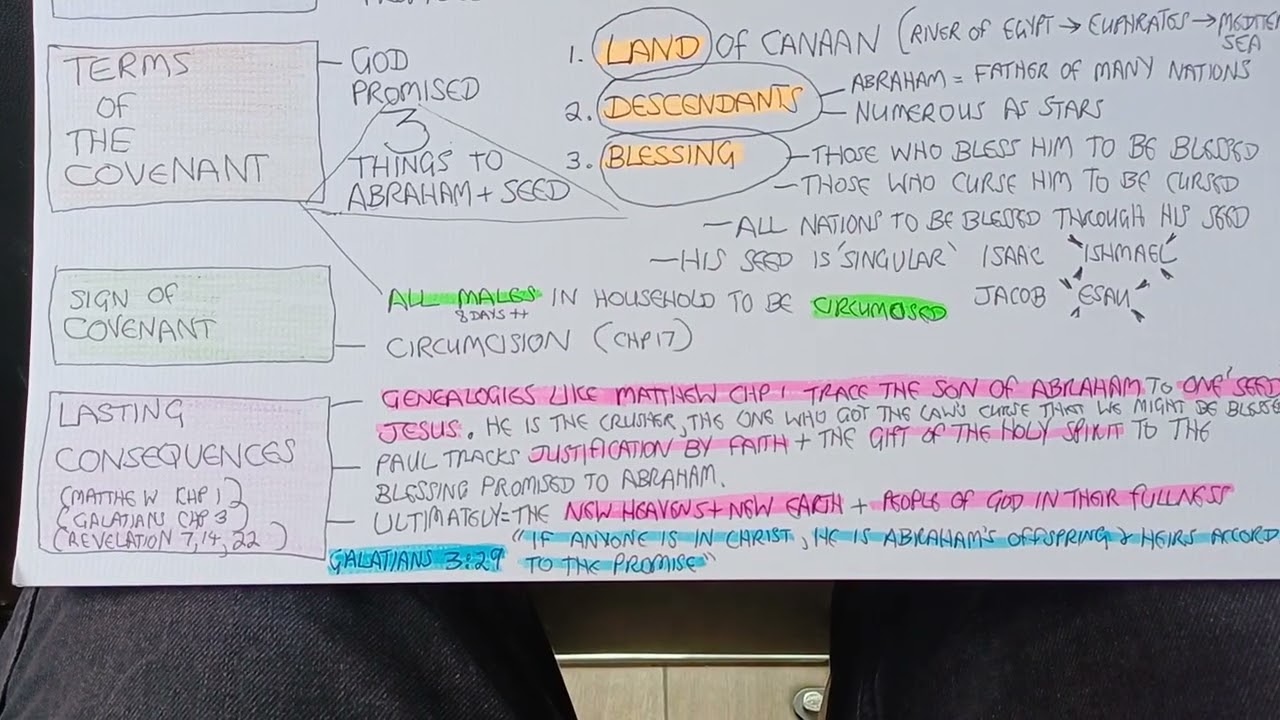 TERMS
OF
THE
COVENANT
GOD
PROMISED
3
THINGS TO
ABRAHAM + SEED
1. LAND OF CANAAN (RIVER OF EGYPT → EUPHRATES → MEDITER
SEA
2. DESCENDANTS
ABRAHAM = FATHER OF MANY NATIONS
NUMEROUS AS STARS
3. BLESSING
THOSE WHO BLESS HIM TO BE BLESSED
THOSE WHO CURSE HIM TO BE CURSED
ALL NATIONS TO BE BLESSED THROUGH HIS SEED
HIS SEED IS 'SINGULAR' ISAAC ISHMAEL
JACOB ESAU
SIGN OF
COVENANT
ALL MALES IN HOUSEHOLD TO BE CIRCUMCISED
8 DAYS ++
CIRCUMCISION (CHP 17)
LASTING
CONSEQUENCES
(MATTHEW CHP 1)
(GALATIANS CHP 3)
(REVELATION 7, 14, 22)
GENEALOGIES LIKE MATTHEW CHP 1 TRACE THE SON OF ABRAHAM TO ONE 'SEED
JESUS. HE IS THE CRUSHER, THE ONE WHO GOT THE LAW'S CURSE THAT WE MIGHT BE BLESSE
PAUL TRACKS JUSTIFICATION BY FAITH + THE GIFT OF THE HOLY SPIRIT TO THE
BLESSING PROMISED TO ABRAHAM.
ULTIMATELY = THE NEW HEAVENS + NEW EARTH + PEOPLE OF GOD IN THEIR FULLNESS
GALATIANS 3:29 "IF ANYONE IS IN CHRIST, HE IS ABRAHAM'S OFFSPRING & HEIRS ACCORD
TO THE PROMISE"